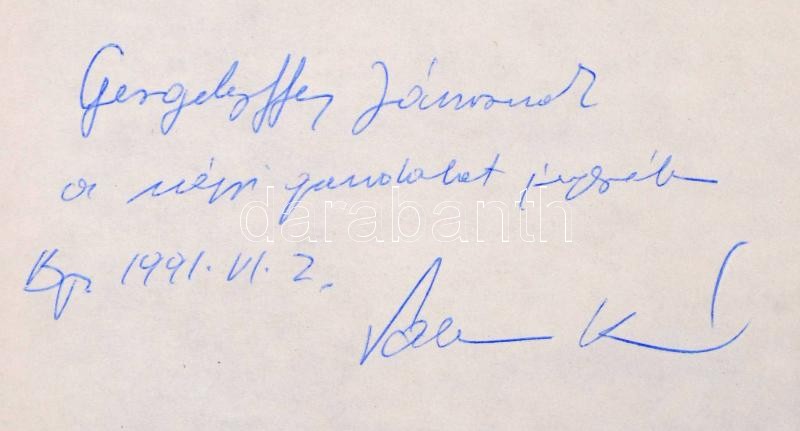 Gergelyffy Jánosnak
a népi gondolat jegyében
darabanth
Bp. 1991. VI. 2.